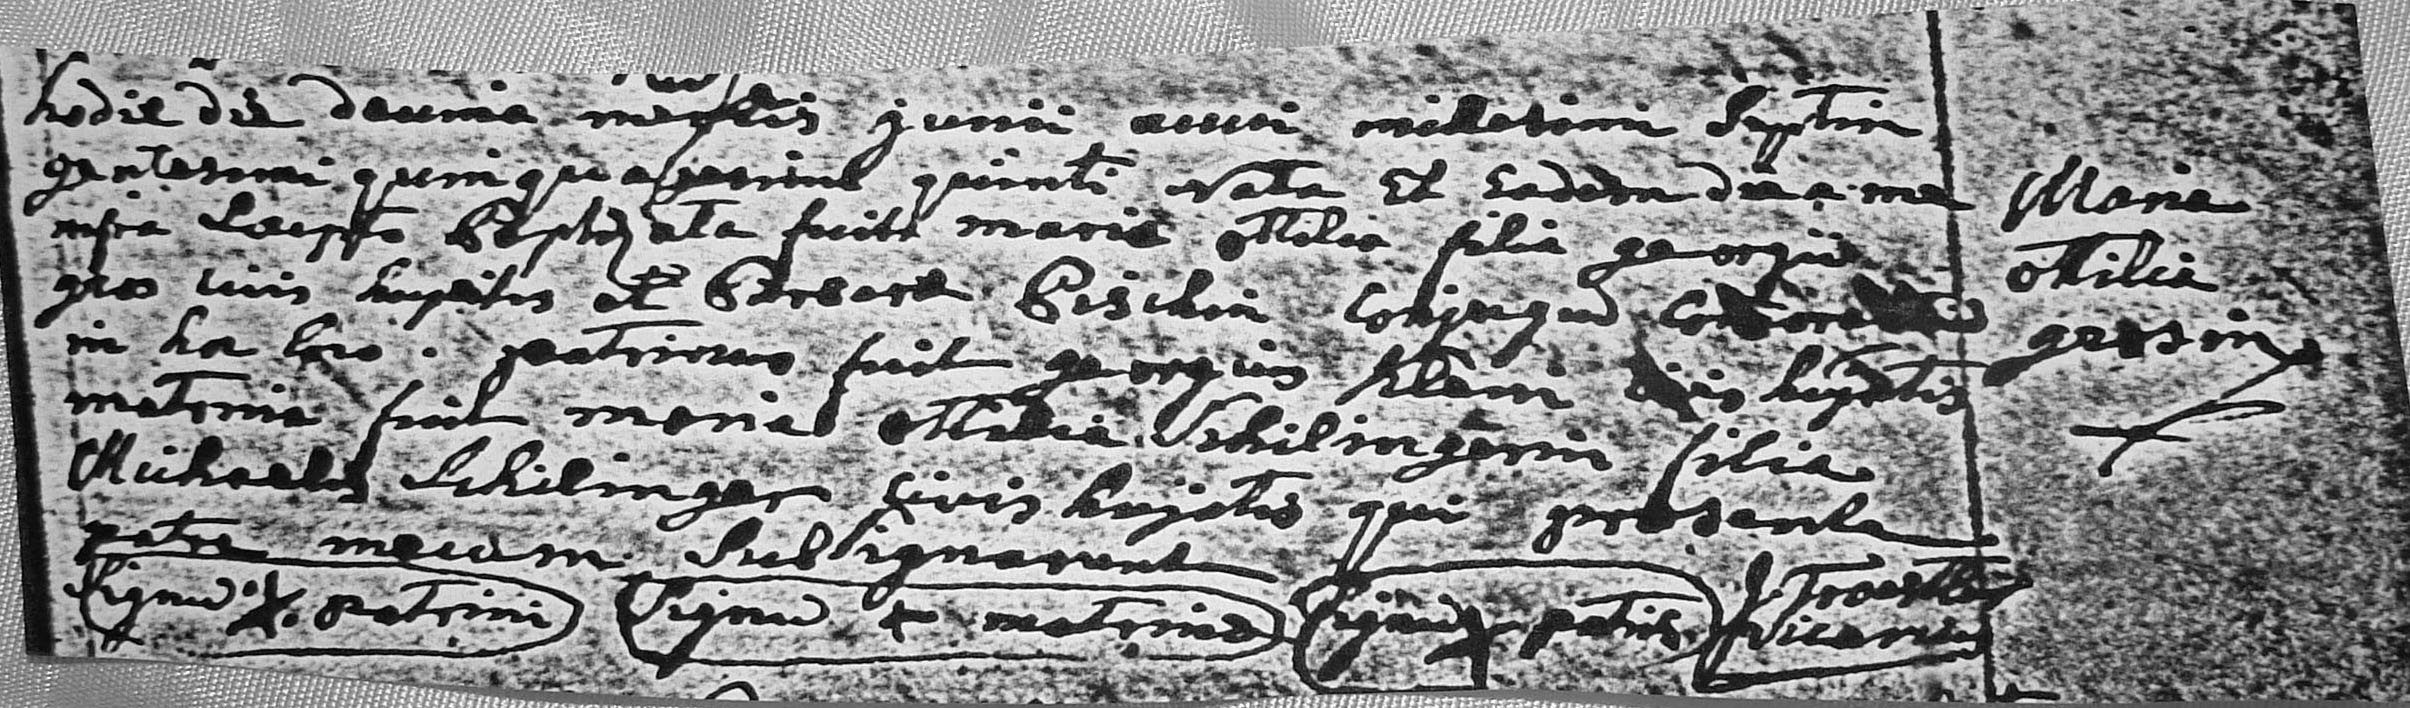 hodie die decima mensis junii anni millesimi septin
gentesimi quinquagesimi quinti nata et eadem die a me
infra scripto baptizata fuit maria ottilia filia georgii
gros civis hujatis et barbara conjugum
in hoc loco. patrinus fuit georgius klein civis hujatis
matrina fuit maria ottilia Schilingerin filia
Michaelis Schilinger civis hujatis qui presente
patre mecum subsignarunt
Signu + patrini Signu + matrina Signu + patris
vicarius
Maria
ottilia
grosin